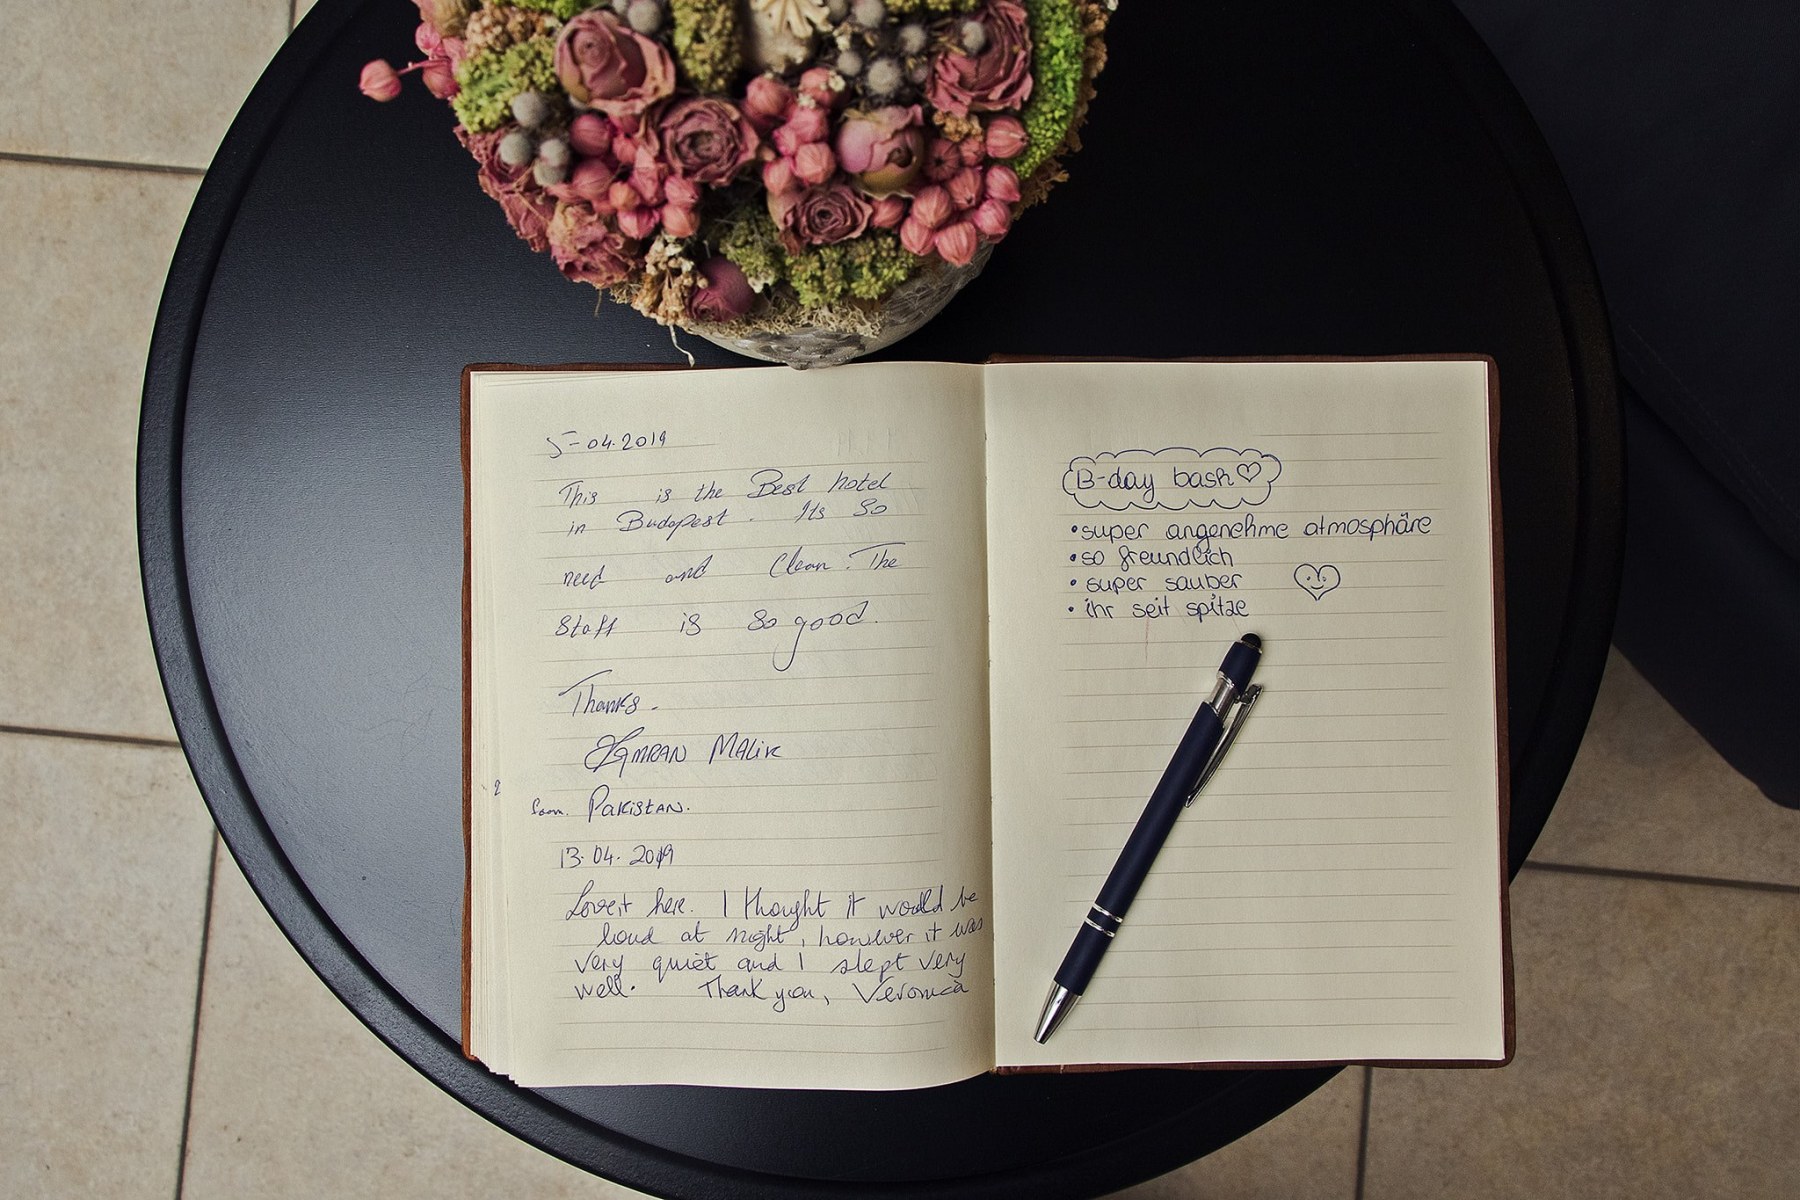 5-04.2019
This is the Best hotel
in Budapest. Its So
need and Clean. The
Staff is so good.
Thanks.
MALIK
from. PAKISTAN.
13.04.2019
Love it here. I thought it would be
loud at night, however it was
very quiet and I slept very
well. Thank you, Veronica
B-day bash
• super angenehme atmosphäre
• so freundlich
• super sauber
• ihr seit spitze